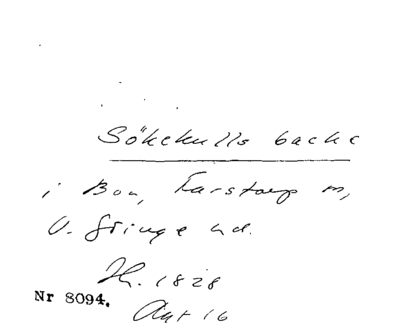 Sökekulls backe
i Bon, Farstorp sn,
V. Göinge hd.
Th. 1828
Nr 8094.
Akt 16